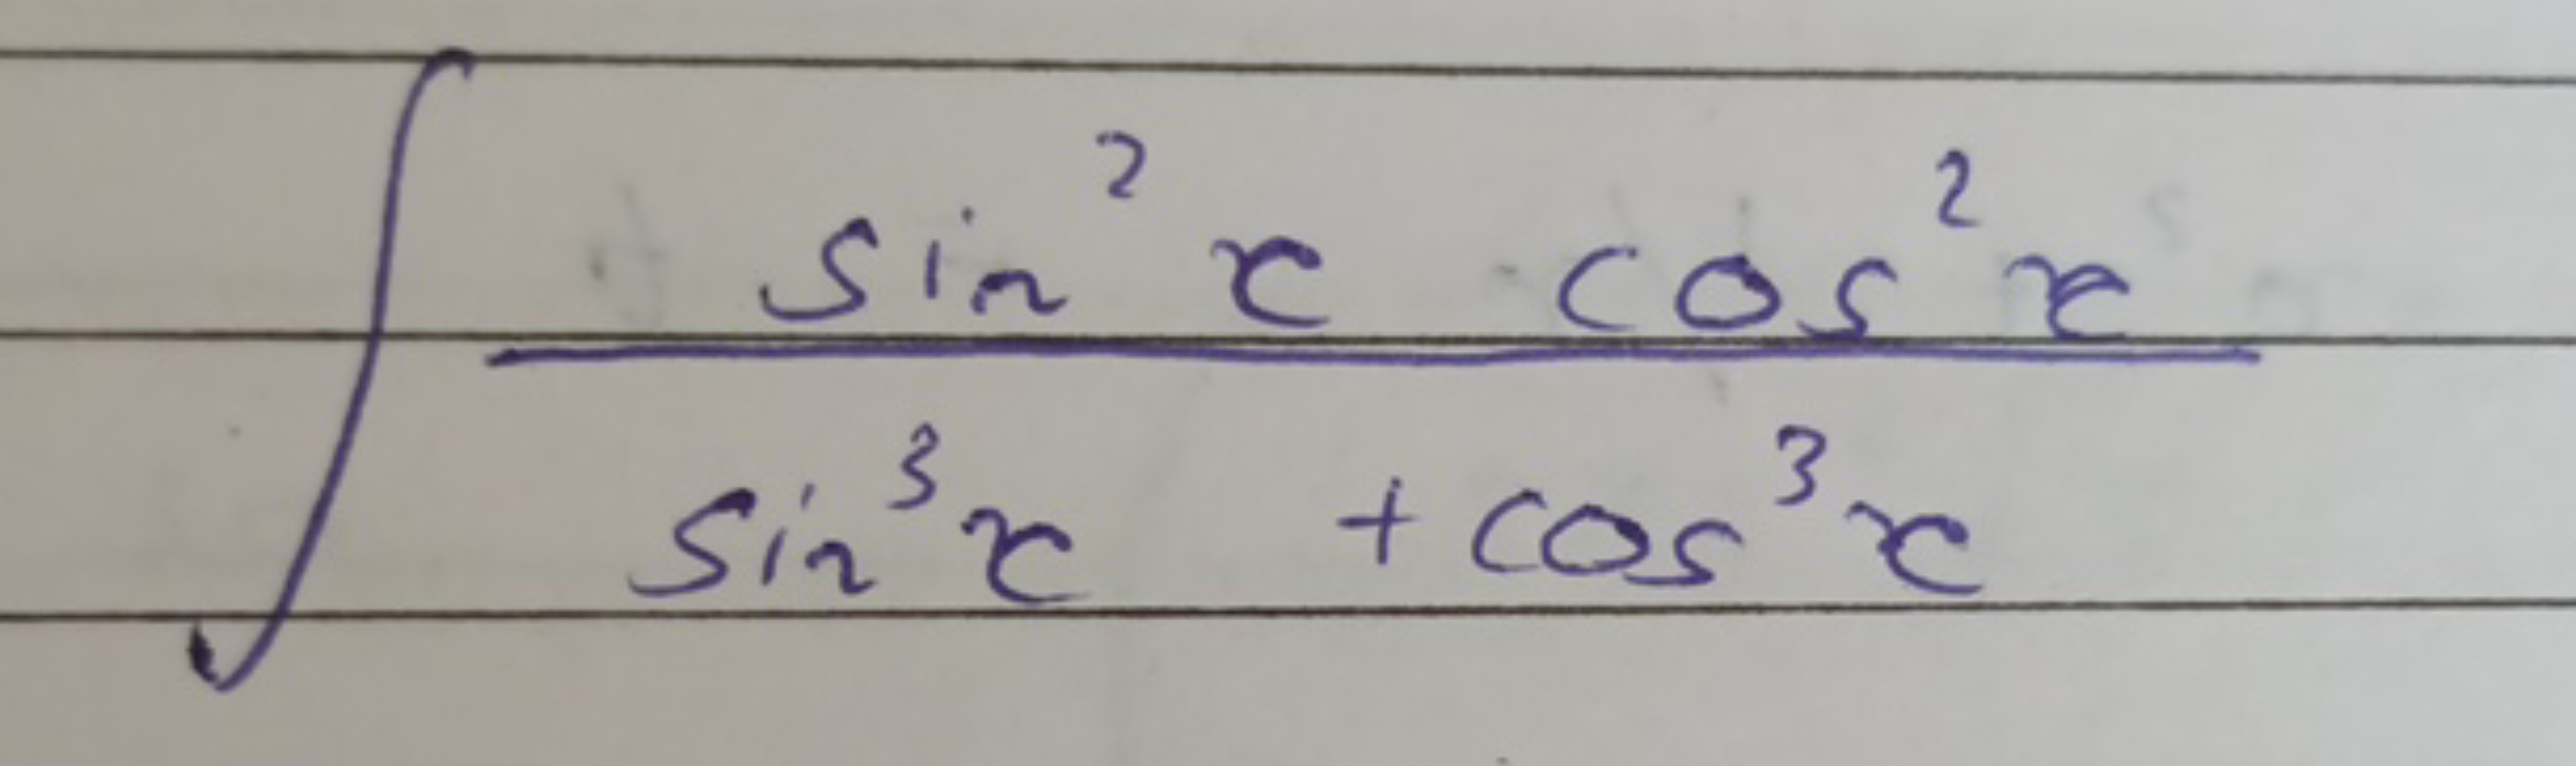 ∫ sin²x cos²x
sin³x + cos³x